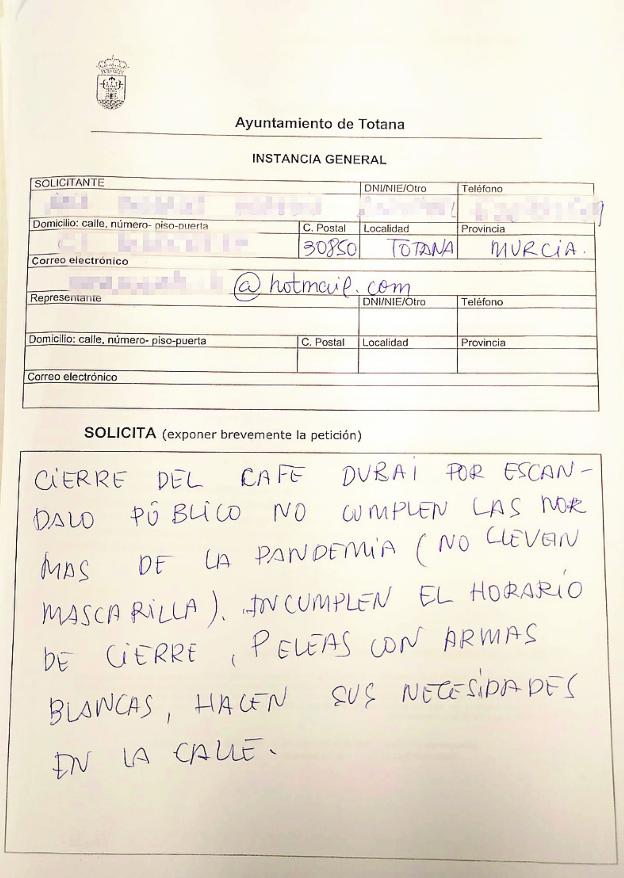 Ayuntamiento de Totana
INSTANCIA GENERAL
SOLICITANTE DNI/NIE/Otro Teléfono
Domicilio: calle, número- piso-puerta C. Postal Localidad Provincia
30850 TOTANA MURCIA.
Correo electrónico
@hotmail.com
Representante DNI/NIE/Otro Teléfono
Domicilio: calle, número- piso-puerta C. Postal Localidad Provincia
Correo electrónico
SOLICITA (exponer brevemente la petición)
CIERRE DEL CAFE DUBAI POR ESCAN-
DALO PÚBLICO NO CUMPLEN LAS NOR
MAS DE LA PANDEMIA (NO LLEVAN
MASCARILLA). INCUMPLEN EL HORARIO
DE CIERRE, PELEAS CON ARMAS
BLANCAS, HACEN SUS NECESIDADES
EN LA CALLE.